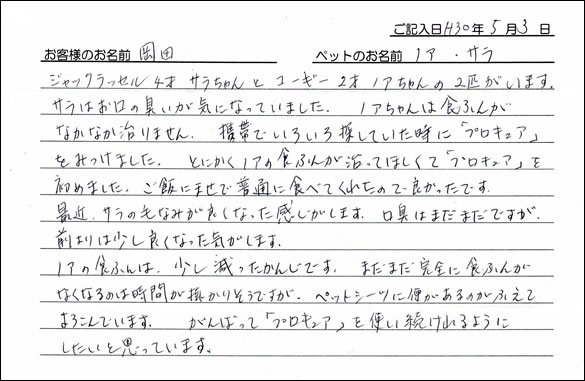 ご記入日H30年5月3日
お客様のお名前 岡田 ペットのお名前 ノア・サラ
ジャックラッセル4才 サラちゃんとコーギー2才ノアちゃんの2匹がいます。
サラはお口の臭いが気になっていました。 ノアちゃんは食ふんが
なかなか治りません。 携帯でいろいろ探していた時に「プロキュア」
をみつけました。 とにかくノアの食ふんが治ってほしくて「プロキュア」を
初めました。ご飯にませで普通に食べてくれたので良かったです。
最近、サラの毛なみが良くなった感じがします。 口臭はまだまだですが、
前よりは少し良くなった気がします。
ノアの食ふんは、少し減ったかんじです。 まだまだ完全に食ふんが
なくなるのは時間が掛かりそうですが、ペットシーツに便があるのがふえて
よろこんでいます。 がんばって「プロキュア」を使い続けれるように
したいと思っています。